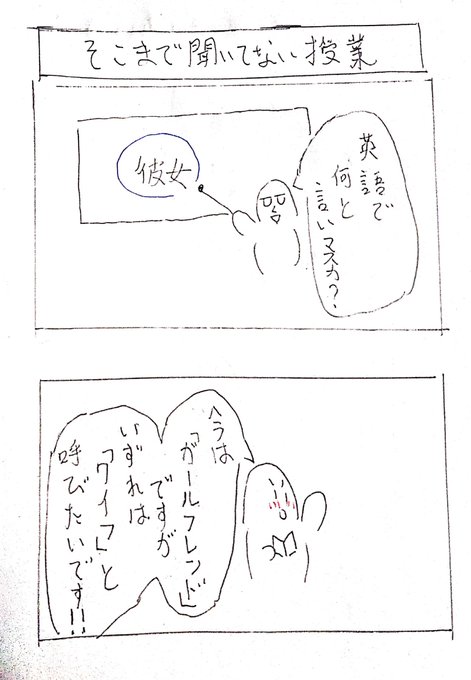 そこまで聞いてない授業
彼女
英語で
何と
言いマスカ?
今は
「ガールフレンド」
ですが
いずれは
「ワイフ」と
呼びたいです!!